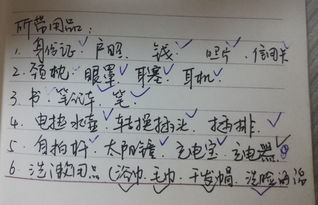 所带用品：
1. 身份证、户照、钱、照片、信用卡
2. 颈枕、眼罩、耳塞、耳机、
3. 书、笔记本、笔、
4. 电热水壶、转换插头、插排、
5. 自拍杆、太阳镜、充电宝、充电器、
6. 洗漱用品（浴巾、毛巾、干发帽、洗脸